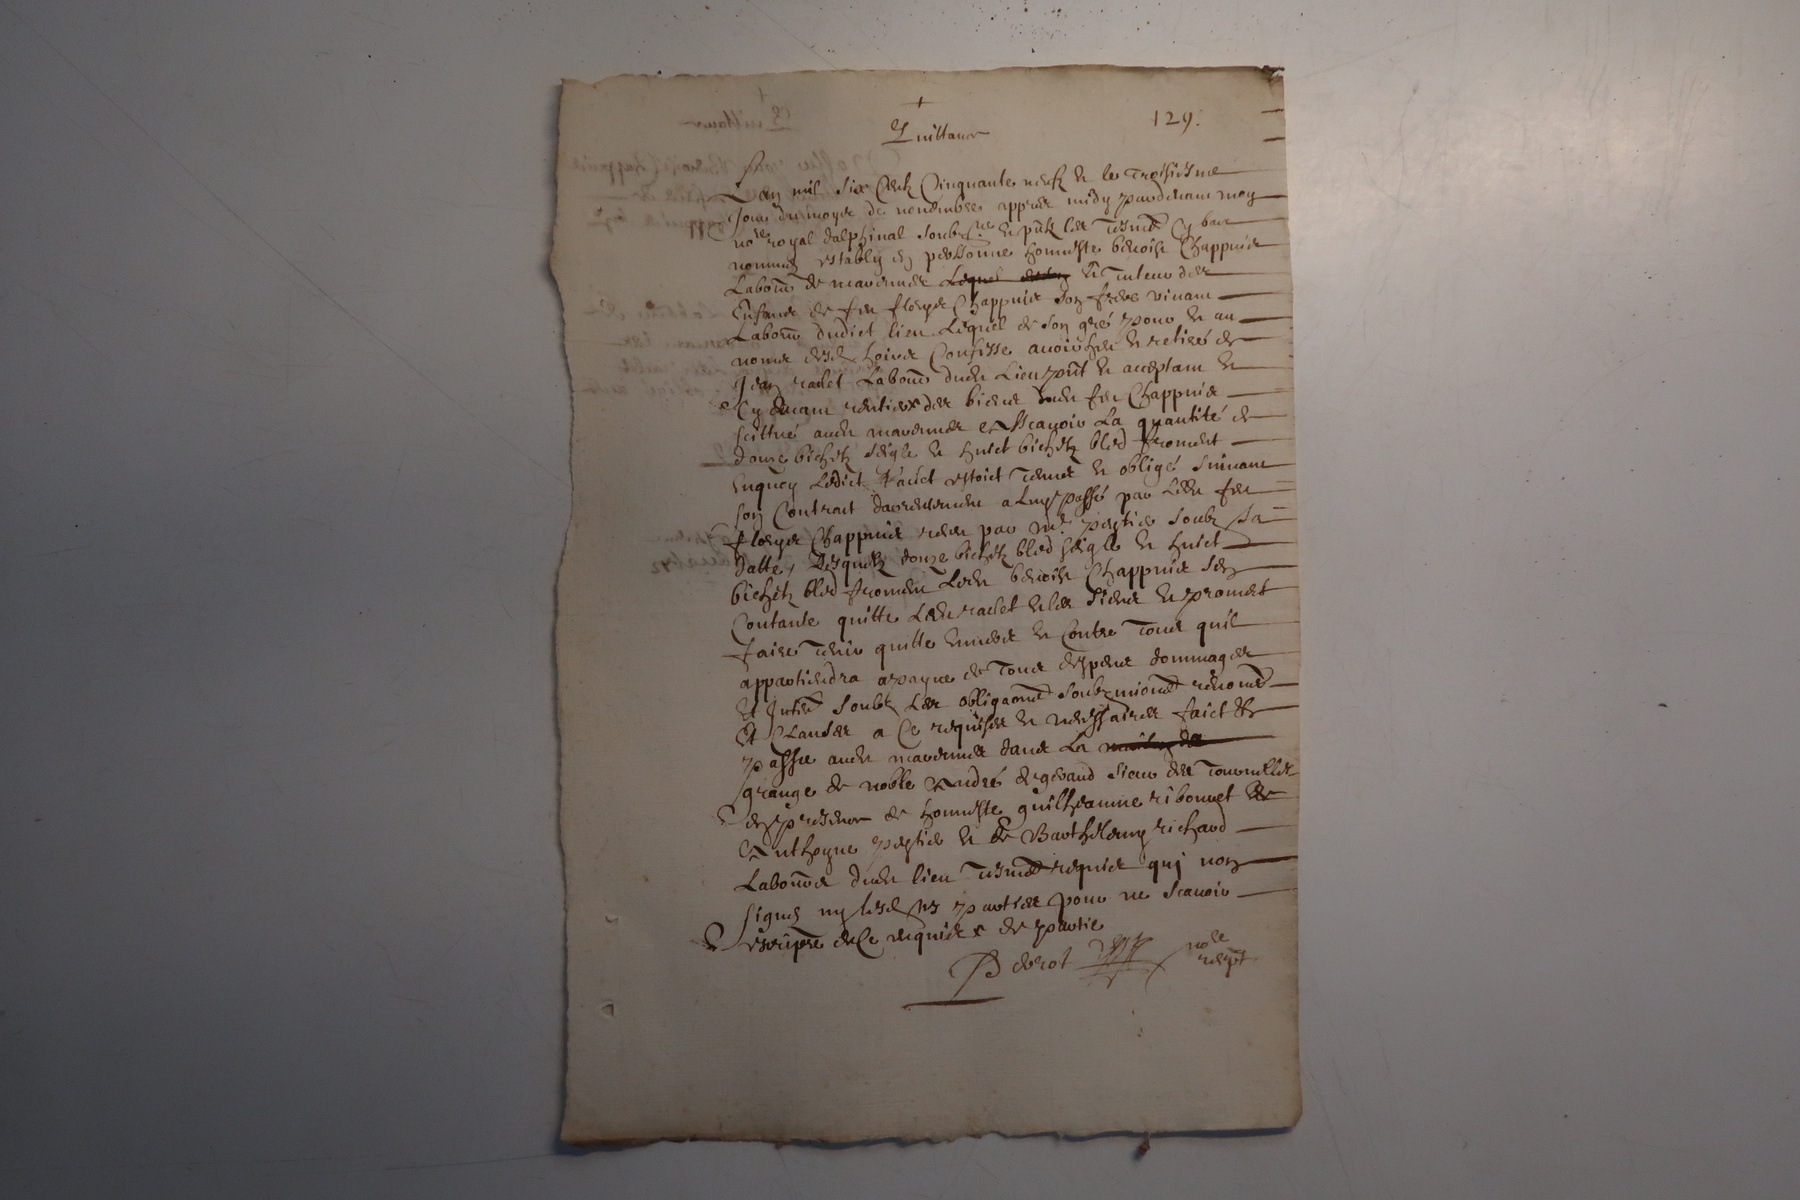 129.
Quittance
Lan mil six centz cinquante neufz & le troisiesme
Jour du moys de novembre appres midy pardevant moy
no.re royal dalphinal soubz.né & pntz les tesmt cy bas
nommés estably en personne honneste benoist Chappuis
Labour de marennes Lequel & tuteur des
Enfans de feu floris Chappuis son frere vivant
Labour dudict lien Lequel de son gré pour & au
noms desd hoirs Confesse avoir heu & retiré de
Jean raclet Labour dudt Lieu pnt & acceptant &
Cy devant rentier des biens dudt feu Chappuis
scittué audt marennes Assçavoir La quantité de
douze bichetz seigle & huict bichetz bled froment
enquoy Ledict raclet estoit tenus & obligé suivant
son Contract darrentement a luy passé par Ledt feu
Chappuis receu par me soubz sa
datte, desquelz douze bichetz bled seigle & huict
bichetz bled froment Ledt benoist Chappuis sen
Contante quitte Ledt raclet & les siens & promet
faire tenir quitte envers & Contre tous quil
appartiendra a payne de tous despens dommages
et Intst soubz Les obligaons soubzmions renons
et Clauses a Ce requises & necessaires faict &
passé audt marennes dans La
grange de noble André sieur des Tournelles
En presence de honneste guilheaume ribonnet
Anthoyne & de Barthelemy richard
Labours dudt lieu tesmt requis quj non
signés ny lesd parties pour ne scavoir
escripre de Ce requis de partie
no.re
recept